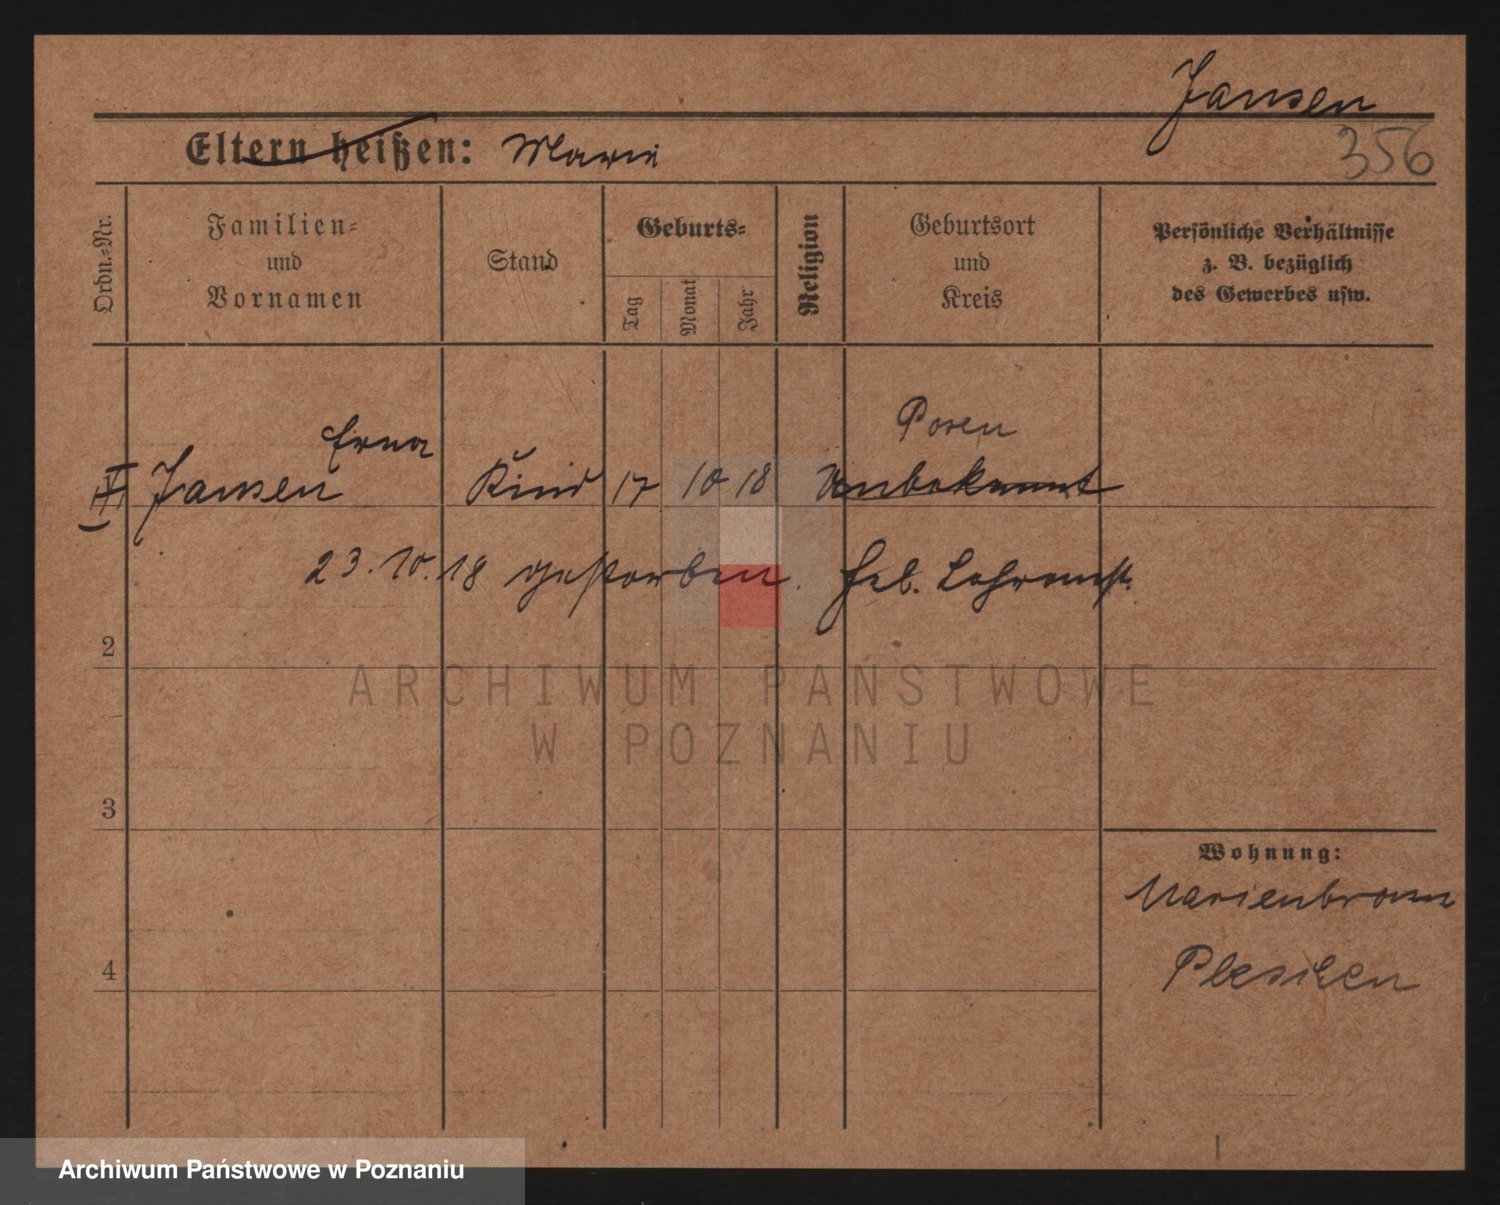 Jansen
Eltern heißen: Marie
356
Ordn.-Nr.
Familien-
und
Vornamen
Stand
Geburts-
Tag
Monat
Jahr
Religion
Geburtsort
und
Kreis
Persönliche Verhältnisse
z. B. bezüglich
des Gewerbes usw.
Erna
Posen
Jansen Kind 17 10 18 Unbekannt
23.10.18 gestorben.
2
3
Wohnung:
Marienbronn
4
Pleschen
ARCHIWUM PAŃSTWOWE
W POZNANIU
Archiwum Państwowe w Poznaniu